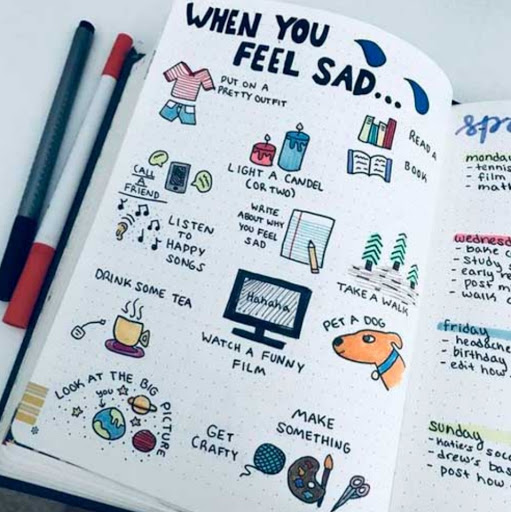 WHEN YOU
FEEL SAD...
PUT ON A
PRETTY OUTFIT
LIGHT A CANDEL
(OR TWO)
READ A
BOOK
CALL
A
FRIEND
LISTEN
TO
HAPPY
SONGS
WRITE
ABOUT WHY
YOU FEEL
SAD
TAKE A WALK
DRINK SOME TEA
Hahaha
WATCH A FUNNY
FILM
PET A DOG
LOOK AT THE BIG PICTURE
you
GET
CRAFTY
MAKE
SOMETHING
monday
- tennis
- film
- math
wednesd
- bake c
- study
- early
- post m
- walk
friday
- headache
- birthday
- edit how
sunday
- katie's socc
- drew's bas
- post how